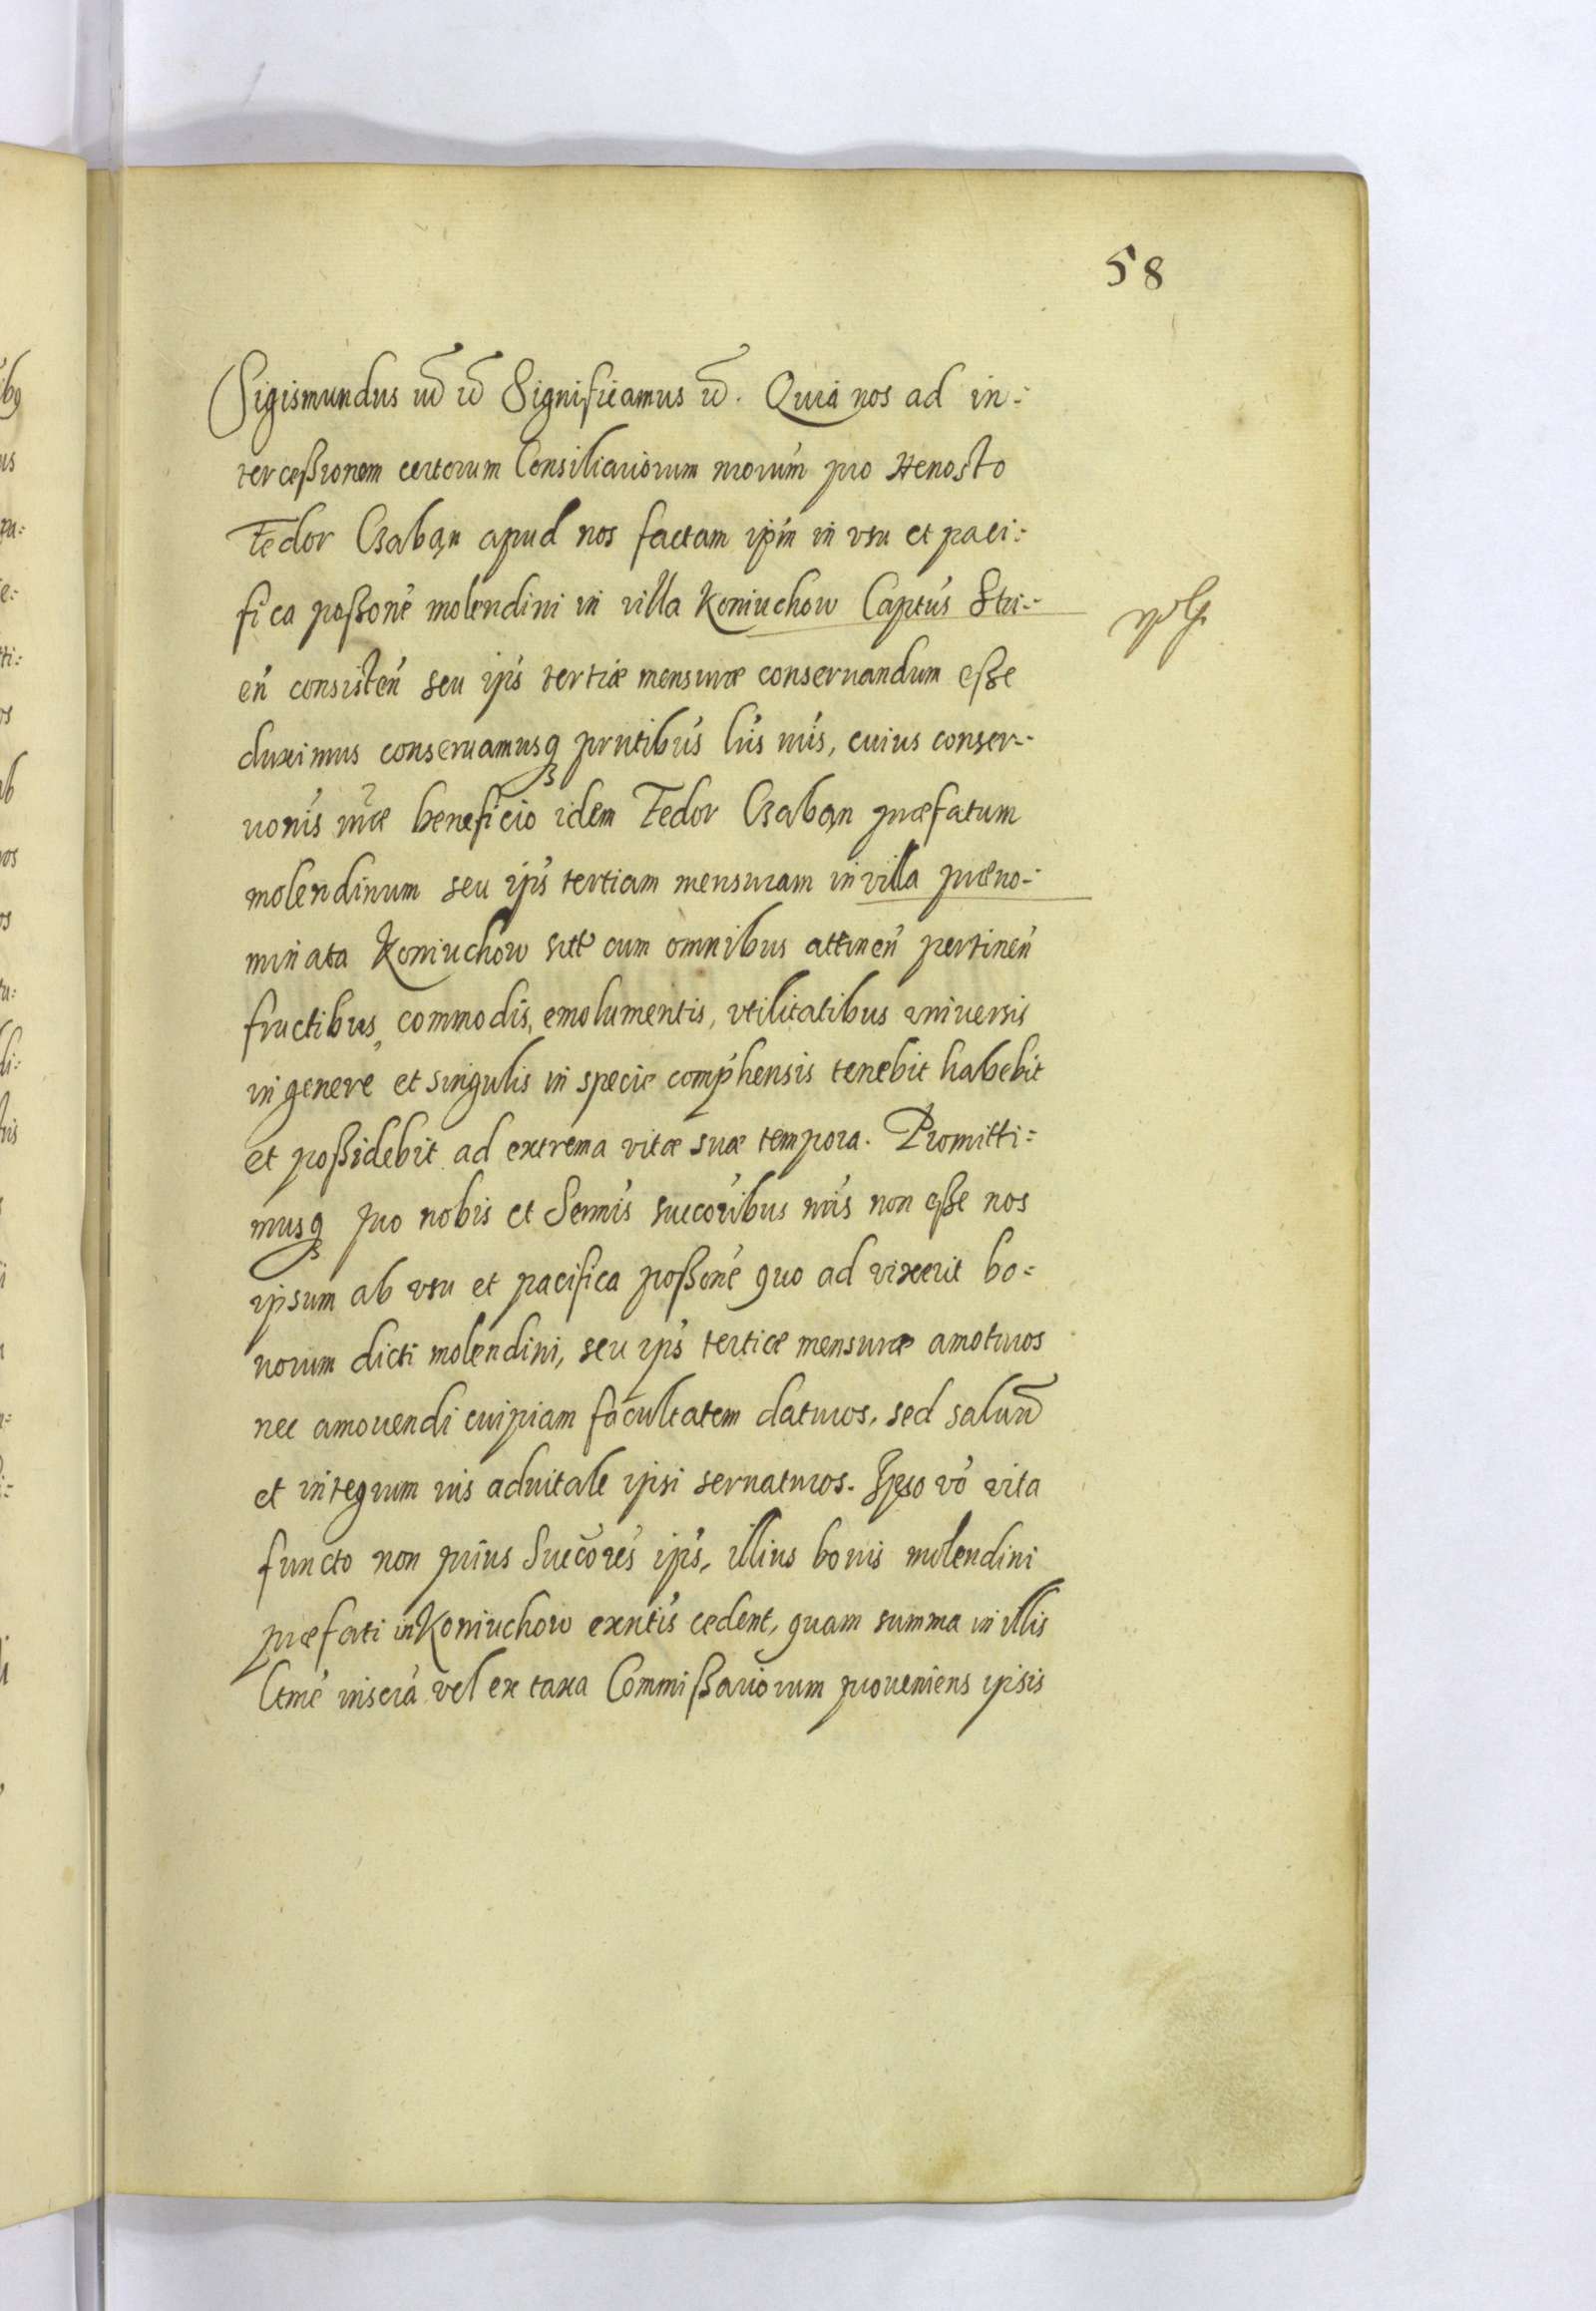 58
Sigismundus Significamus. Quia nos ad in-
terceßionem certorum Consiliariorum nrorum pro Honesto
Fedor Czaban apud nos factam ipm in vsu et paci-
fica poßone molendini in villa Koniuchow Captus Stri-
en consisten seu ips tertiæ mensuræ conseruandum eße
duximus conseruamusq prntibus lris nris, cuius conser-
uonis nræ beneficio idem Fedor Czaban præfatum
molendinum seu ips tertiam mensuram in villa præno-
minata Koniuchow sitt cum omnibus attinen pertinen
fructibus, commodis, emolumentis, vtilitatibus vniuersis
in genere et singulis in specie comphensis tenebit habebit
et poßidebit ad extrema vitæ suæ tempora. Promitti-
musq pro nobis et Sermis succoribus nris non eße nos
ipsum ab vsu et pacifica poßone quo ad vixerit bo-
norum dicti molendini, seu ips tertiæ mensuræ amoturos
nec amouendi cuipiam facultatem daturos, sed saluum
et integrum ius aduitale ipsi seruaturos. Ipso vo vita
functo non prius Succores ips, illius bonis molendini
præfati in Koniuchow exntis cedent, quam summa in illis
ltme inscra vel ex taxa Commißariorum proueniens ipsis